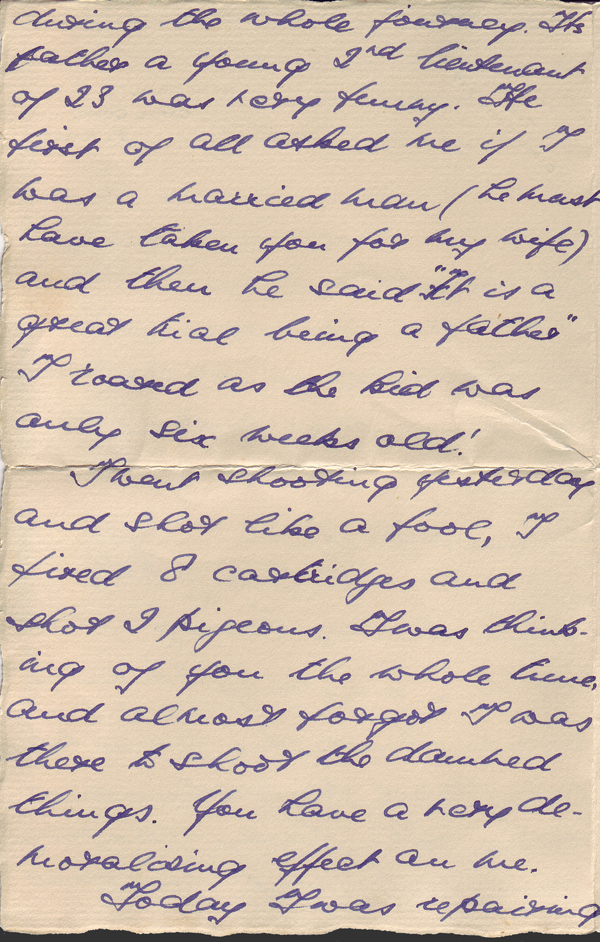 during the whole journey. Its
father a young 2nd lieutenant
of 23 was very funny. He
first of all asked me if I
was a married man (he must
have taken you for my wife)
and then he said "It is a
great trial being a father"
I roared as the kid was
only six weeks old!
I went shooting yesterday
and shot like a fool, I
fired 8 cartridges and
shot 2 pigeons. I was think-
ing of you the whole time,
and almost forgot I was
there to shoot the damned
things. You have a very de-
moralising effect on me.
Today I was repairing